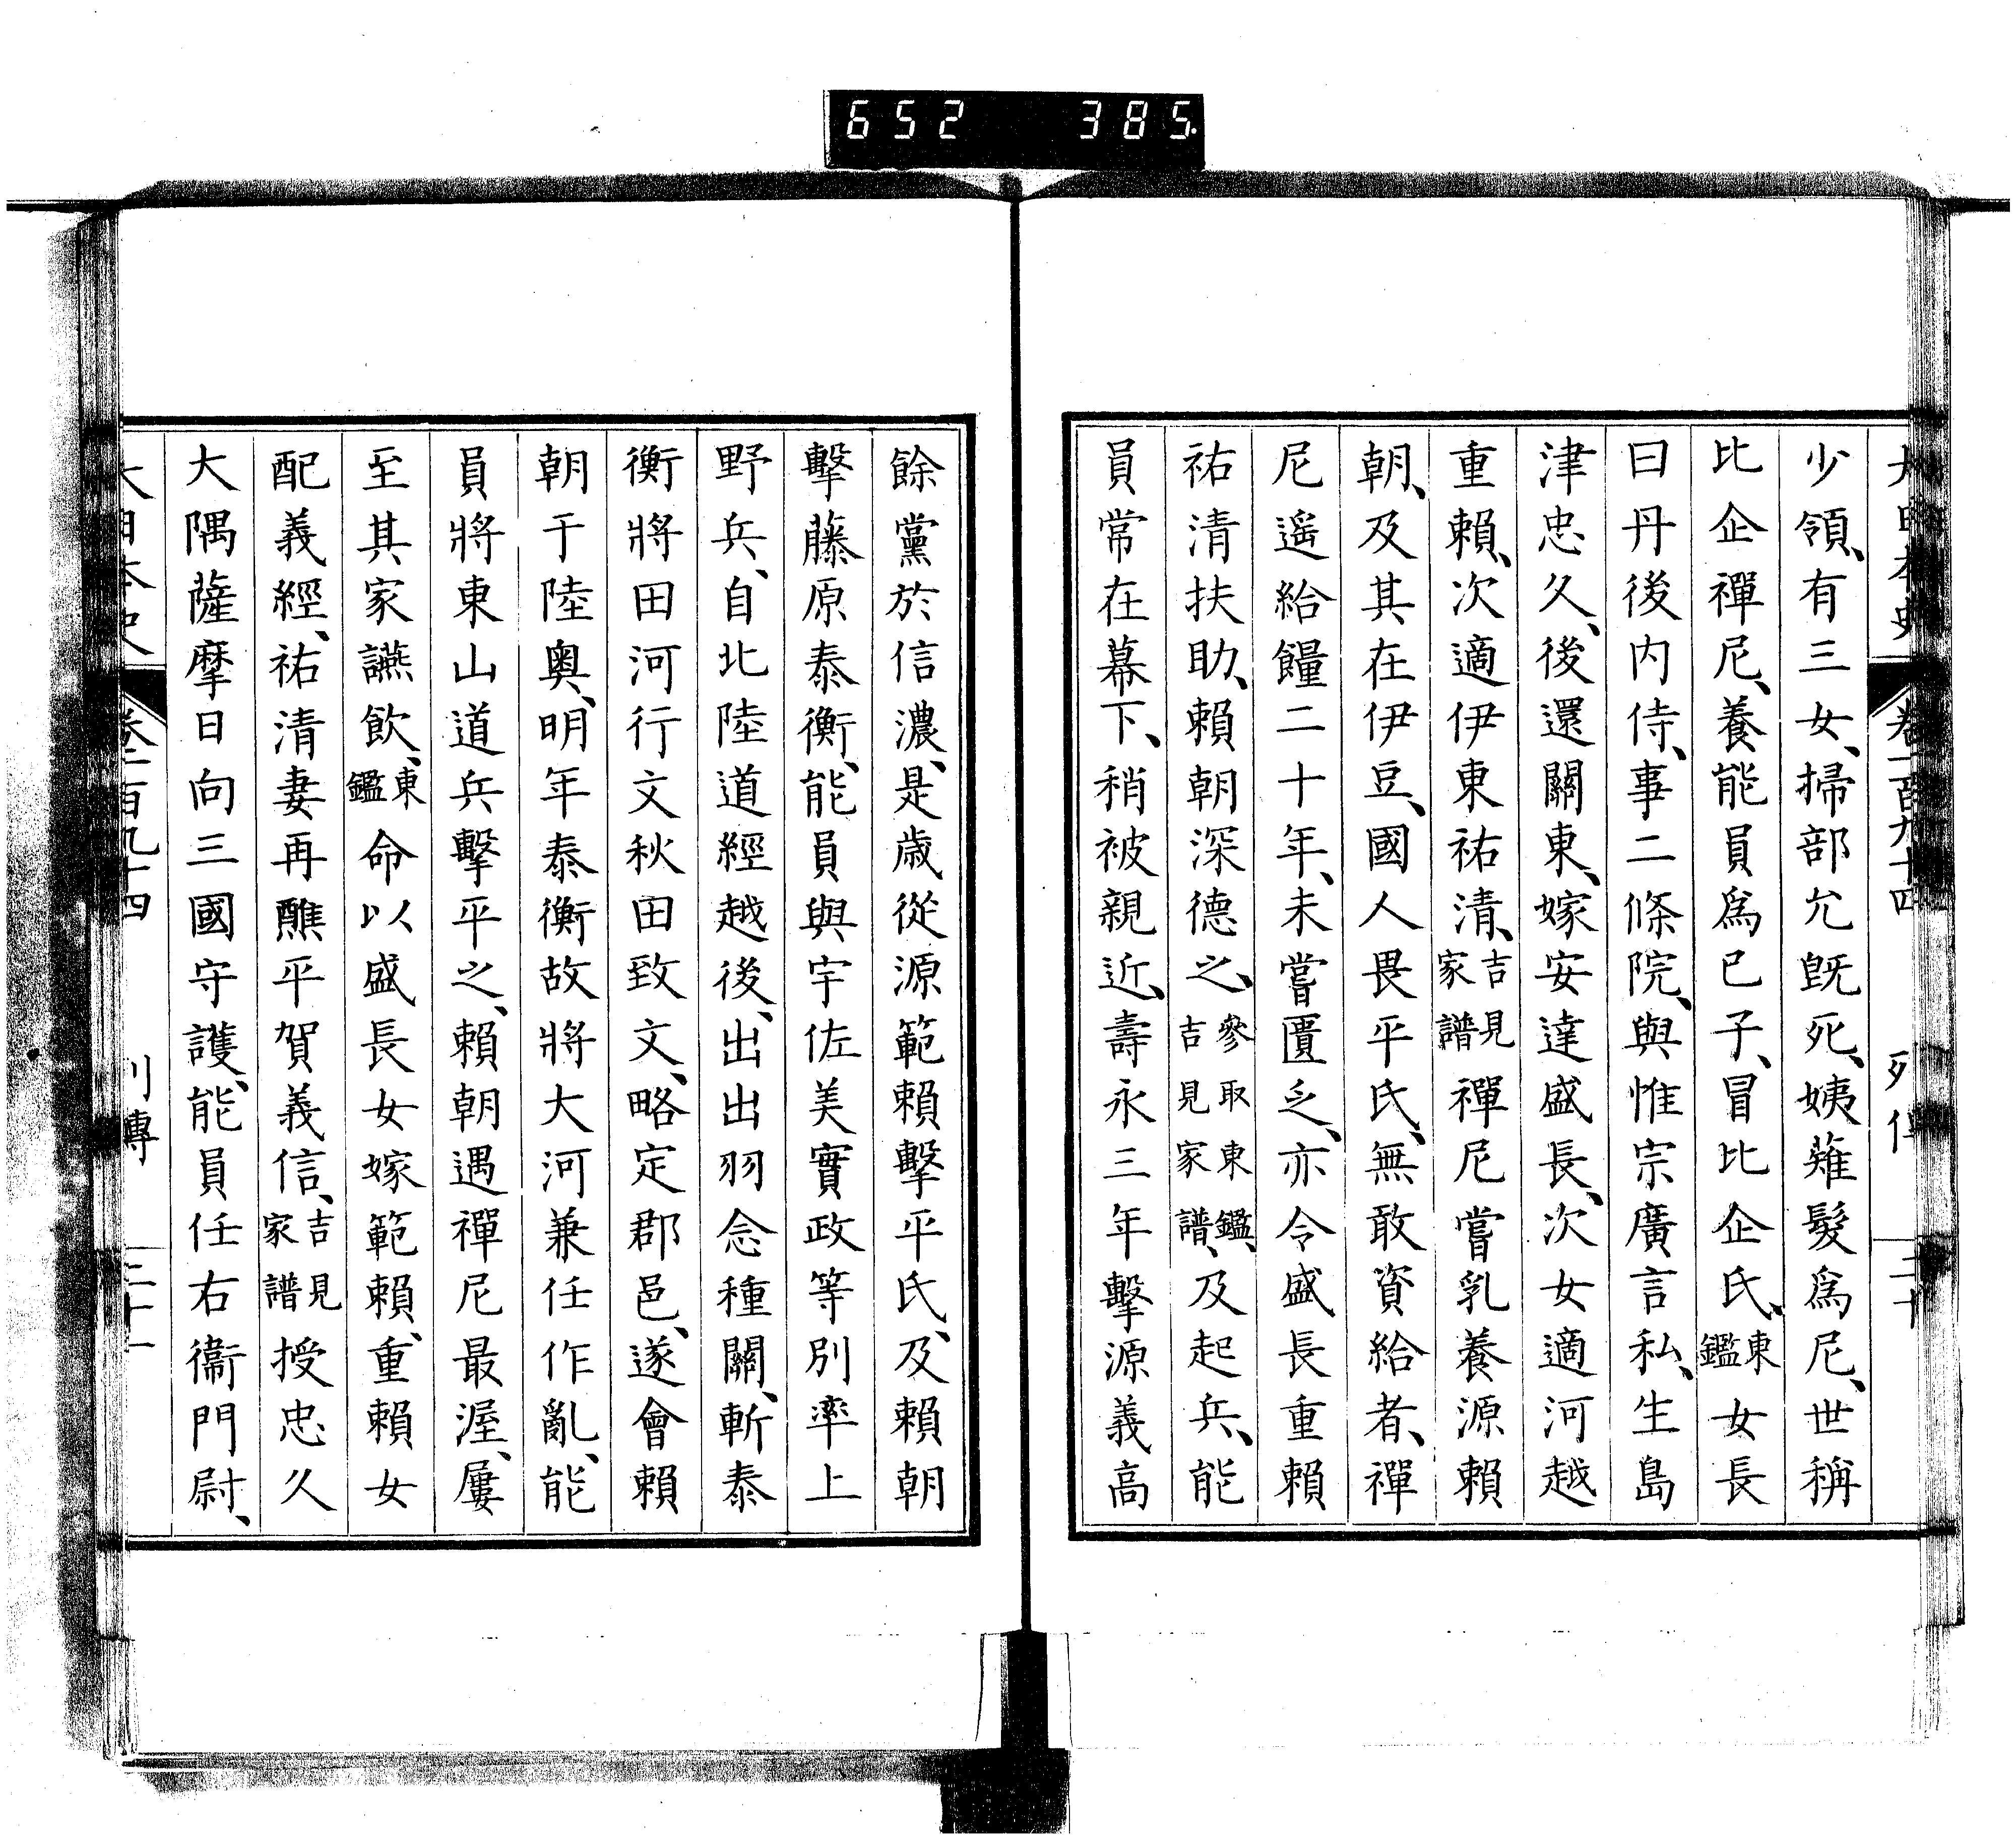 652 385
大日本史 卷一百九十四 列傳 二十
少領、有三女、掃部允既死、姨薙髮爲尼、世稱
比企禪尼、養能員爲己子、冒比企氏、東鑑女長
曰丹後内侍、事二條院、與惟宗廣言私、生島
津忠久、後還關東、嫁安達盛長、次女適河越
重賴、次適伊東祐清、吉見家譜禪尼嘗乳養源賴
朝、及其在伊豆、國人畏平氏、無敢資給者、禪
尼遥給餽二十年、未嘗匱乏、亦令盛長重賴
祐清扶助、賴朝深德之、參取東鑑、吉見家譜、及起兵、能
員常在幕下、稍被親近、壽永三年擊源義高
餘黨於信濃、是歲從源範賴擊平氏、及賴朝
擊藤原泰衡、能員與宇佐美實政等別率上
野兵、自北陸道經越後、出出羽念種關、斬泰
衡將田河行文秋田致文、略定郡邑、遂會賴
朝于陸奥、明年泰衡故將大河兼任作亂、能
員將東山道兵擊平之、賴朝遇禪尼最渥、屢
至其家讌飲、東鑑命以盛長女嫁範賴、重賴女
配義經、祐清妻再醮平賀義信、吉見家譜授忠久
大隅薩摩日向三國守護、能員任右衞門尉、
大日本史 卷一百九十四 列傳 二十一